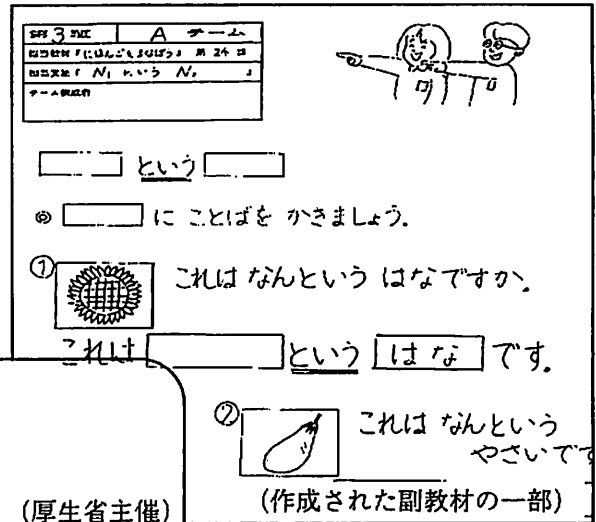 3 A チーム
担当教材『にほんごをまなぼう』 第 24 課
担当文型「 N₁ という N₂ 」
チーム構成員
という
◎ に ことばを かきましょう。
① これは なんという はなですか。
これは という はな です。
② これは なんという
やさいです
(厚生省主催)
(作成された副教材の一部)